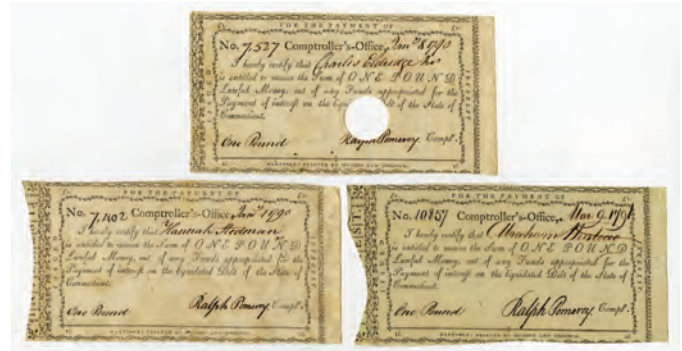 FOR THE PAYMENT OF
No. 7,527 Comptroller's-Office, Jan^y 8 1790
I hereby certify that Charles Eldredge
is entitled to receive the Sum of ONE POUND
Lawful Money, out of any Funds appropriated for the
Payment of interest on the liquidated Debt of the State of
Connecticut.
One Pound Ralph Pomeroy Compt^r.
FOR THE PAYMENT OF
No. 7,402 Comptroller's-Office, Jan^y 1790
I hereby certify that Hannah
is entitled to receive the Sum of ONE POUND
Lawful Money, out of any Funds appropriated for the
Payment of interest on the liquidated Debt of the State of
Connecticut.
One Pound Ralph Pomeroy Compt^r.
FOR THE PAYMENT OF
No. 10857 Comptroller's-Office, Mar. 9. 1791
I hereby certify that Abraham
is entitled to receive the Sum of ONE POUND
Lawful Money, out of any Funds appropriated for the
Payment of interest on the liquidated Debt of the State of
Connecticut.
One Pound Ralph Pomeroy Compt^r.